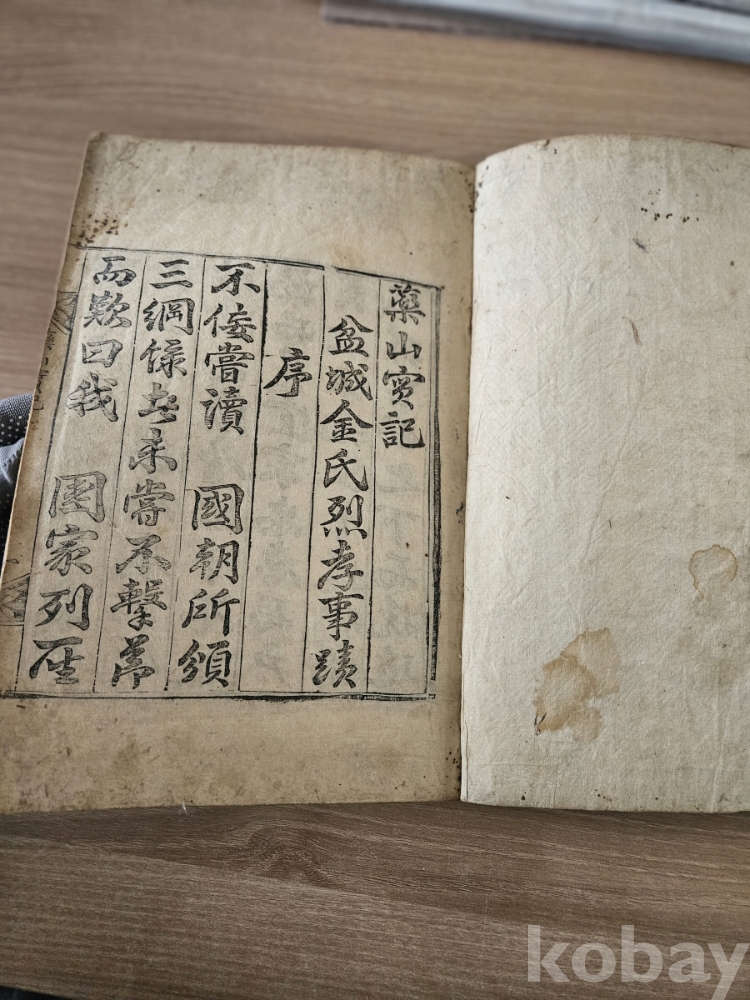 藥山實記
盆城金氏烈孝事蹟
序
不佞嘗讀 國朝所頒
三綱錄未嘗不擊節
而歎曰我 國家列聖
kobay